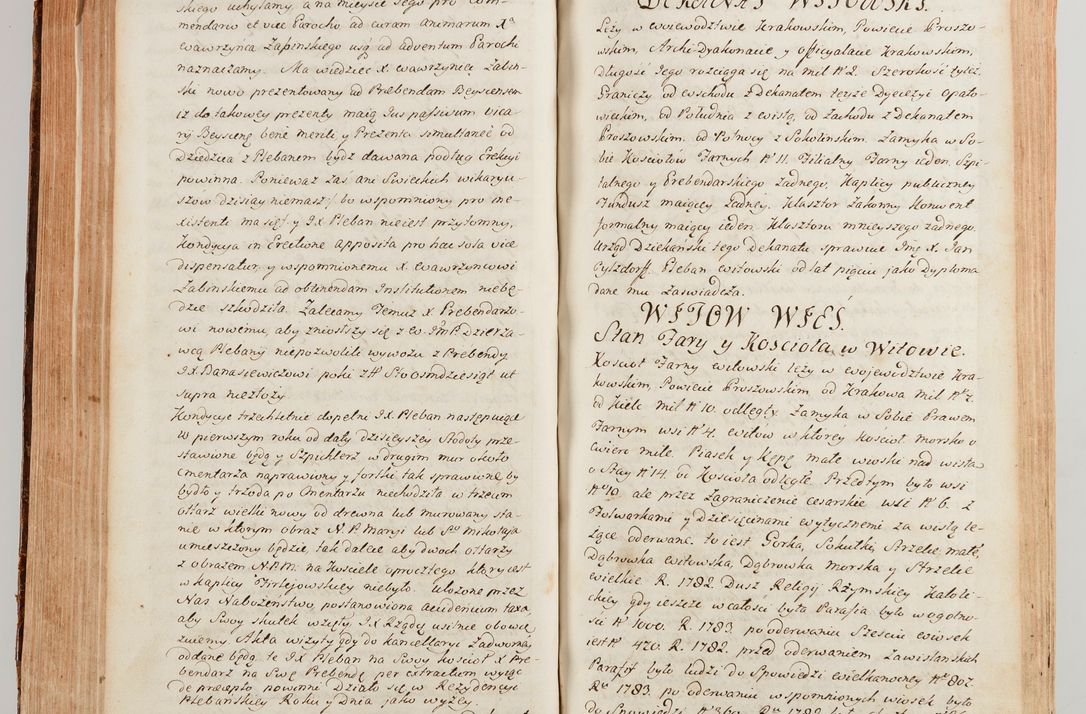 skiego uchylamy a na mieysce Jego pro Com-
mendario et vice Parocho ad curam animarum Xa
Wawrzynca Zapinskiego usq ad adventum Parochi
naznaczamy. Ma wiedziec X. Wawrzyniec Zabin-
ski nowo prezentowany ad Præbendam Beyscensem
iz do takowey prezenty maią Jus passivum Vica-
rij Beyscenę bene meriti y Prezenta simultanee od
Dziedzica z Plebanem bydz dawana podług Erekcyi
powinna. Poniewaz zaś ani Swieckich wikaryu-
szow dzisiay niemasz / bo wspomniony pro ine-
xistenti ma się / y JX Pleban nieiest przytomny,
Kondycya in Erectione apposita pro hac sola vice
dispensatur, y wspomnionemu X. Wawrzyncowi
Zabinskiemu ad obtinendam Institutionem niebę-
dzie szkodziła. Zalecamy Jemuz X. Prebendarzo-
wi nowemu, aby zniosłszy się z W. JmP. Dzierza-
wcą Plebany niepozwolili wywozu z Prebendy
JX Banasiewiczowi poki zł Sto Osmdziesiąt ut
supra niezłozy.
Kondycye trzechletnie dopełni JX Pleban następuiące
W pierwszym roku od daty dzisieyszey Stodoły prze-
stawione będą y Szpichlerz w drugim mur około
Cmentarza naprawiony y fortki tak sprawione by
bydło y trzoda po Cmentarzu niechodziła w trzecim
Ołtarz wielki nowy od drewna lub murowany sta-
nie w ktorym obraz N. P. Maryi lub Sgo Mikołaja
umieszczony będzie, tak dalece aby dwoch ołtarzy
z obrazem N.P.M. na Kosciele oprocz tego ktory iest
w Kaplicy Firlejowskiey niebyło. Ułozone przez
Nas Nabozeństwo, postanowiona accidencium taxa
aby Swoy skutek wzięły JX Rządcę usilnie obowią
zuiemy Akta wizyty gdy do kancellaryi Zadworney
oddane będą, te JX Pleban na Swoy kosciół X Pre-
bendarz na Swę Prebendę per extractum wyiąć
de præcepto powinni Działo się w Rezydencyi
Plebańskiey Roku y Dnia jako wyżey.
DEKANAT WITOWSKI.
Leży w wojewodztwie Krakowskim, Powiecie Proszo-
wskim, Archi-Dyakonacie y officyalacie Krakowskim,
Długość Jego rozciąga się na mil No 2. Szerokość tyleż.
Graniczy od wschodu z Dekanatem teyże Dyecezyi Opato-
wieckim, od Południa z wisłą, od Zachodu z Dekanatem
Proszowskim, od Połnocy z Sokolinskim. Zamyka w So-
bie Kosciołów Farnych No 11. Filialny Farny ieden. Szpi-
talnego y Prebendarskiego żadnego, Kaplicy publiczney
Fundusz maiącey żadney. Klasztor Zakonny Konwent
formalny maiący ieden. Klasztoru mnieyszego żadnego
Urząd Dziekański tego Dekanatu sprawuie Jmć X. Jan
Pleban Witowski od lat pięciu jako Dyploma
dane mu Zaswiadcza.
WITOW WIEŚ.
Stan Fary y Kościoła w Witowie.
Kościoł Farny Witowski leży w Wojewodztwie Kra-
kowskim, Powiecie Proszowskim, od Krakowa mil No 7.
od Kielc mil No 10. odległy. Zamyka w Sobie Prawem
Farnym wsi No 4. Witow w ktorey Kościoł. Morsko o
cwierc mile. Piasek y Kępę małe wioski nad wisłą
o Stay No 14. od Kosciola odległe. Przedtym było wsi
No 10. ale przez Zagraniczenie cesarskie wsi No 6. z
Folwarkami y Dziesięcinami wytycznemi za wisłą le-
żące oderwane. to iest Gorka, Sokołki, Strzelce małe,
Dąbrowka Witowska, Dąbrowka Morska y Strzelce
wielkie R. 1782. Dusz Religij Rzymskiey Katoli-
ckiey gdy ieszcze w całości była Parafia było w ogolno-
ści No 1000. R. 1783. po oderwaniu Sześciu wiosek
iest No 470. R. 1782. przed oderwaniem Zawislańskich
Parafij było ludzi do Spowiedzi wielkanocney No 802.
Ru 1783. po oderwaniu wspomnionych wiosek było
do Spowiedzi No 360.